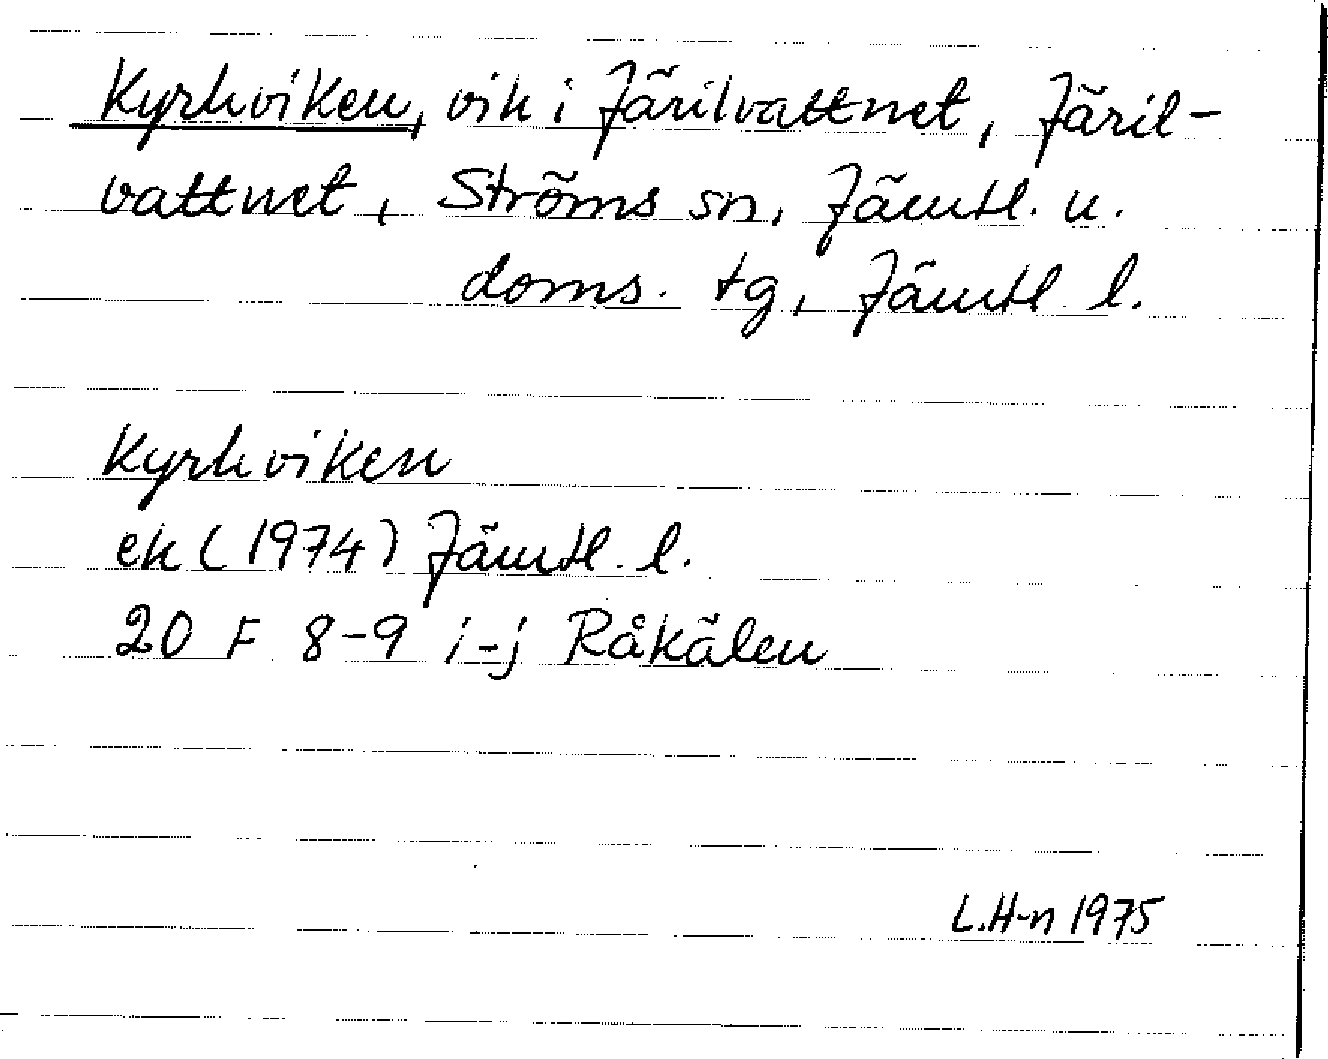 Kyrkviken, vik i Järilvattnet, Järil-
vattnet, Ströms sn, Jämtl. n.
doms. tg, Jämtl l.
Kyrkviken
ek (1974) Jämtl. l.
20 F 8-9 i-j Råkälen
L.H-n 1975